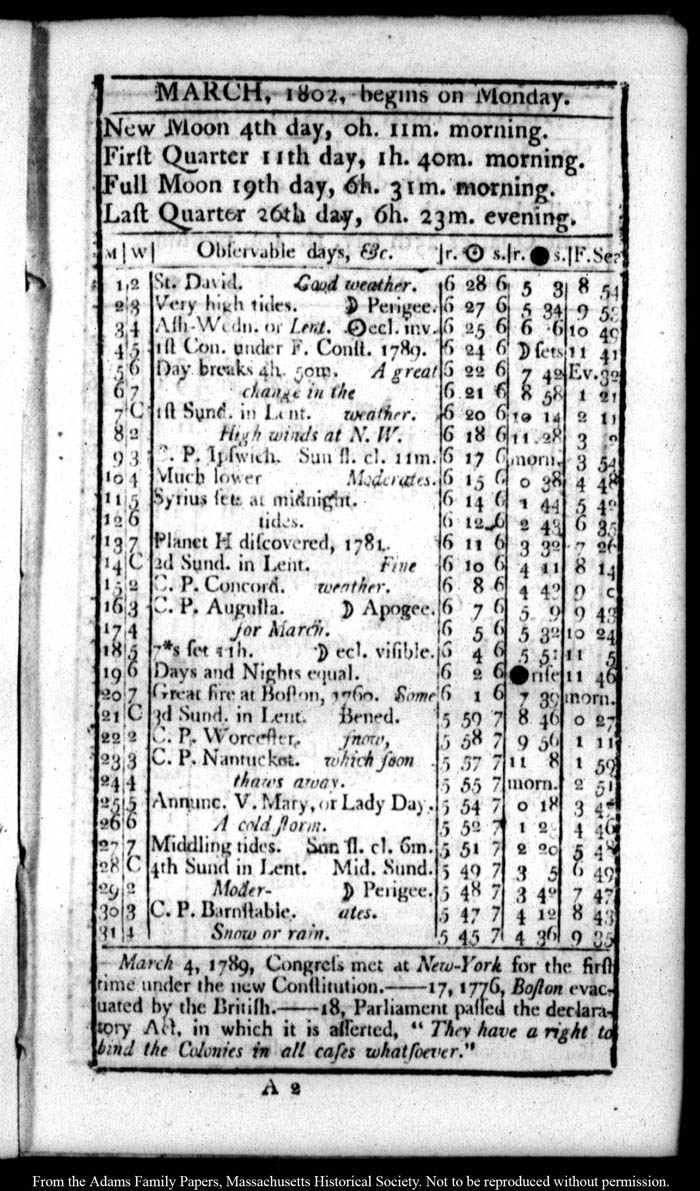 MARCH, 1802, begins on Monday.
New Moon 4th day, 0h. 11m. morning.
Firſt Quarter 11th day, 1h. 40m. morning.
Full Moon 19th day, 6h. 31m. morning.
Laſt Quarter 26th day, 6h. 23m. evening.
M|W| Obſervable days, &c. |r. ☉ s.|r. ● s.|F. Sea
1 2 St. David. Good weather. 6 28 6 5 3 8 54
2 3 Very high tides. ☽ Perigee. 6 27 6 5 34 9
3 4 Aſh-Wedn. or Lent. ☉ecl. inv. 6 25 6 6 6 10 49
4 5 1ſt Con. under F. Conſt. 1789. 6 24 6 ☽ ſets 11 41
5 6 Day breaks 4h. 50m. A great 6 22 6 7 42 Ev. 32
6 7 change in the 6 21 6 8 58 1 21
7 C 1ſt Sund. in Lent. weather. 6 20 6 10 14 2 11
8 2 High winds at N. W. 6 18 6 11 28 3
9 3 C. P. Ipſwich. Sun ſl. cl. 11m. 6 17 6 morn. 3 54
10 4 Much lower Moderates. 6 15 6 0 38 4 48
11 5 Syrius ſets at midnight. 6 14 6 1 44 5 42
12 6 tides. 6 12 6 2 43 6 35
13 7 Planet H diſcovered, 1781. 6 11 6 3 32 7 26
14 C 2d Sund. in Lent. Fine 6 10 6 4 11 8 14
15 2 C. P. Concord. weather. 6 8 6 4 42 9
16 3 C. P. Auguſta. ☽ Apogee. 6 7 6 5 9 9 43
17 4 for March. 6 5 6 5 32 10 24
18 5 7*s ſet 11h. ☽ ecl. viſible. 6 4 6 5 51 11 5
19 6 Days and Nights equal. 6 2 6 ● riſe 11 46
20 7 Great fire at Boſton, 1760. Some 6 1 6 7 39 morn.
21 C 3d Sund. in Lent. Bened. 5 59 7 8 46 0 27
22 2 C. P. Worceſter. ſnow, 5 58 7 9 56 1 11
23 3 C. P. Nantucket. which ſoon 5 57 7 11 8 1 59
24 4 thaws away. 5 55 7 morn. 2 51
25 5 Annunc. V. Mary, or Lady Day. 5 54 7 0 18 3
26 6 A cold ſtorm. 5 52 7 1 4 46
27 7 Middling tides. Sun ſl. cl. 6m. 5 51 7 2 20 5 48
28 C 4th Sund in Lent. Mid. Sund. 5 49 7 3 5 6 49
29 2 Moder- ☽ Perigee. 5 48 7 3 42 7 47
30 3 C. P. Barnſtable. ates. 5 47 7 4 12 8 43
31 4 Snow or rain. 5 45 7 4 36 9 35
March 4, 1789, Congreſs met at New-York for the firſt
time under the new Conſtitution.——17, 1776, Boſton evac-
uated by the Britiſh.——18, Parliament paſſed the declara-
tory Act, in which it is aſſerted, "They have a right to
bind the Colonies in all caſes whatſoever."
A 2
From the Adams Family Papers, Massachusetts Historical Society. Not to be reproduced without permission.